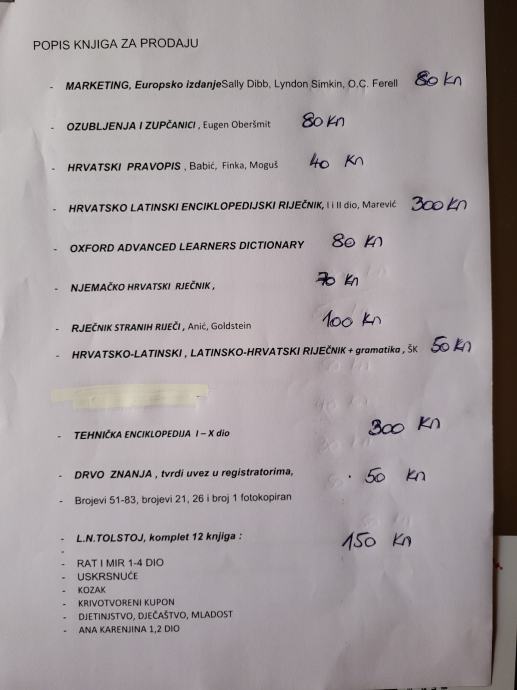 POPIS KNJIGA ZA PRODAJU
- MARKETING, Europsko izdanjeSally Dibb, Lyndon Simkin, O.C. Ferell 80 Kn
- OZUBLJENJA I ZUPČANICI , Eugen Oberšmit 80 Kn
- HRVATSKI PRAVOPIS , Babić, Finka, Moguš 40 Kn
- HRVATSKO LATINSKI ENCIKLOPEDIJSKI RIJEČNIK, I i II dio, Marević 300 Kn
- OXFORD ADVANCED LEARNERS DICTIONARY 80 Kn
- NJEMAČKO HRVATSKI RJEČNIK , 70 Kn
- RJEČNIK STRANIH RIJEČI , Anić, Goldstein 100 Kn
- HRVATSKO-LATINSKI , LATINSKO-HRVATSKI RIJEČNIK + gramatika , ŠK 50 Kn
- TEHNIČKA ENCIKLOPEDIJA I – X dio 300 Kn
- DRVO ZNANJA , tvrdi uvez u registratorima, 50 Kn
- Brojevi 51-83, brojevi 21, 26 i broj 1 fotokopiran
- L.N.TOLSTOJ, komplet 12 knjiga : 150 Kn
-
- RAT I MIR 1-4 DIO
- USKRSNUĆE
- KOZAK
- KRIVOTVORENI KUPON
- DJETINJSTVO, DJEČAŠTVO, MLADOST
- ANA KARENJINA 1,2 DIO